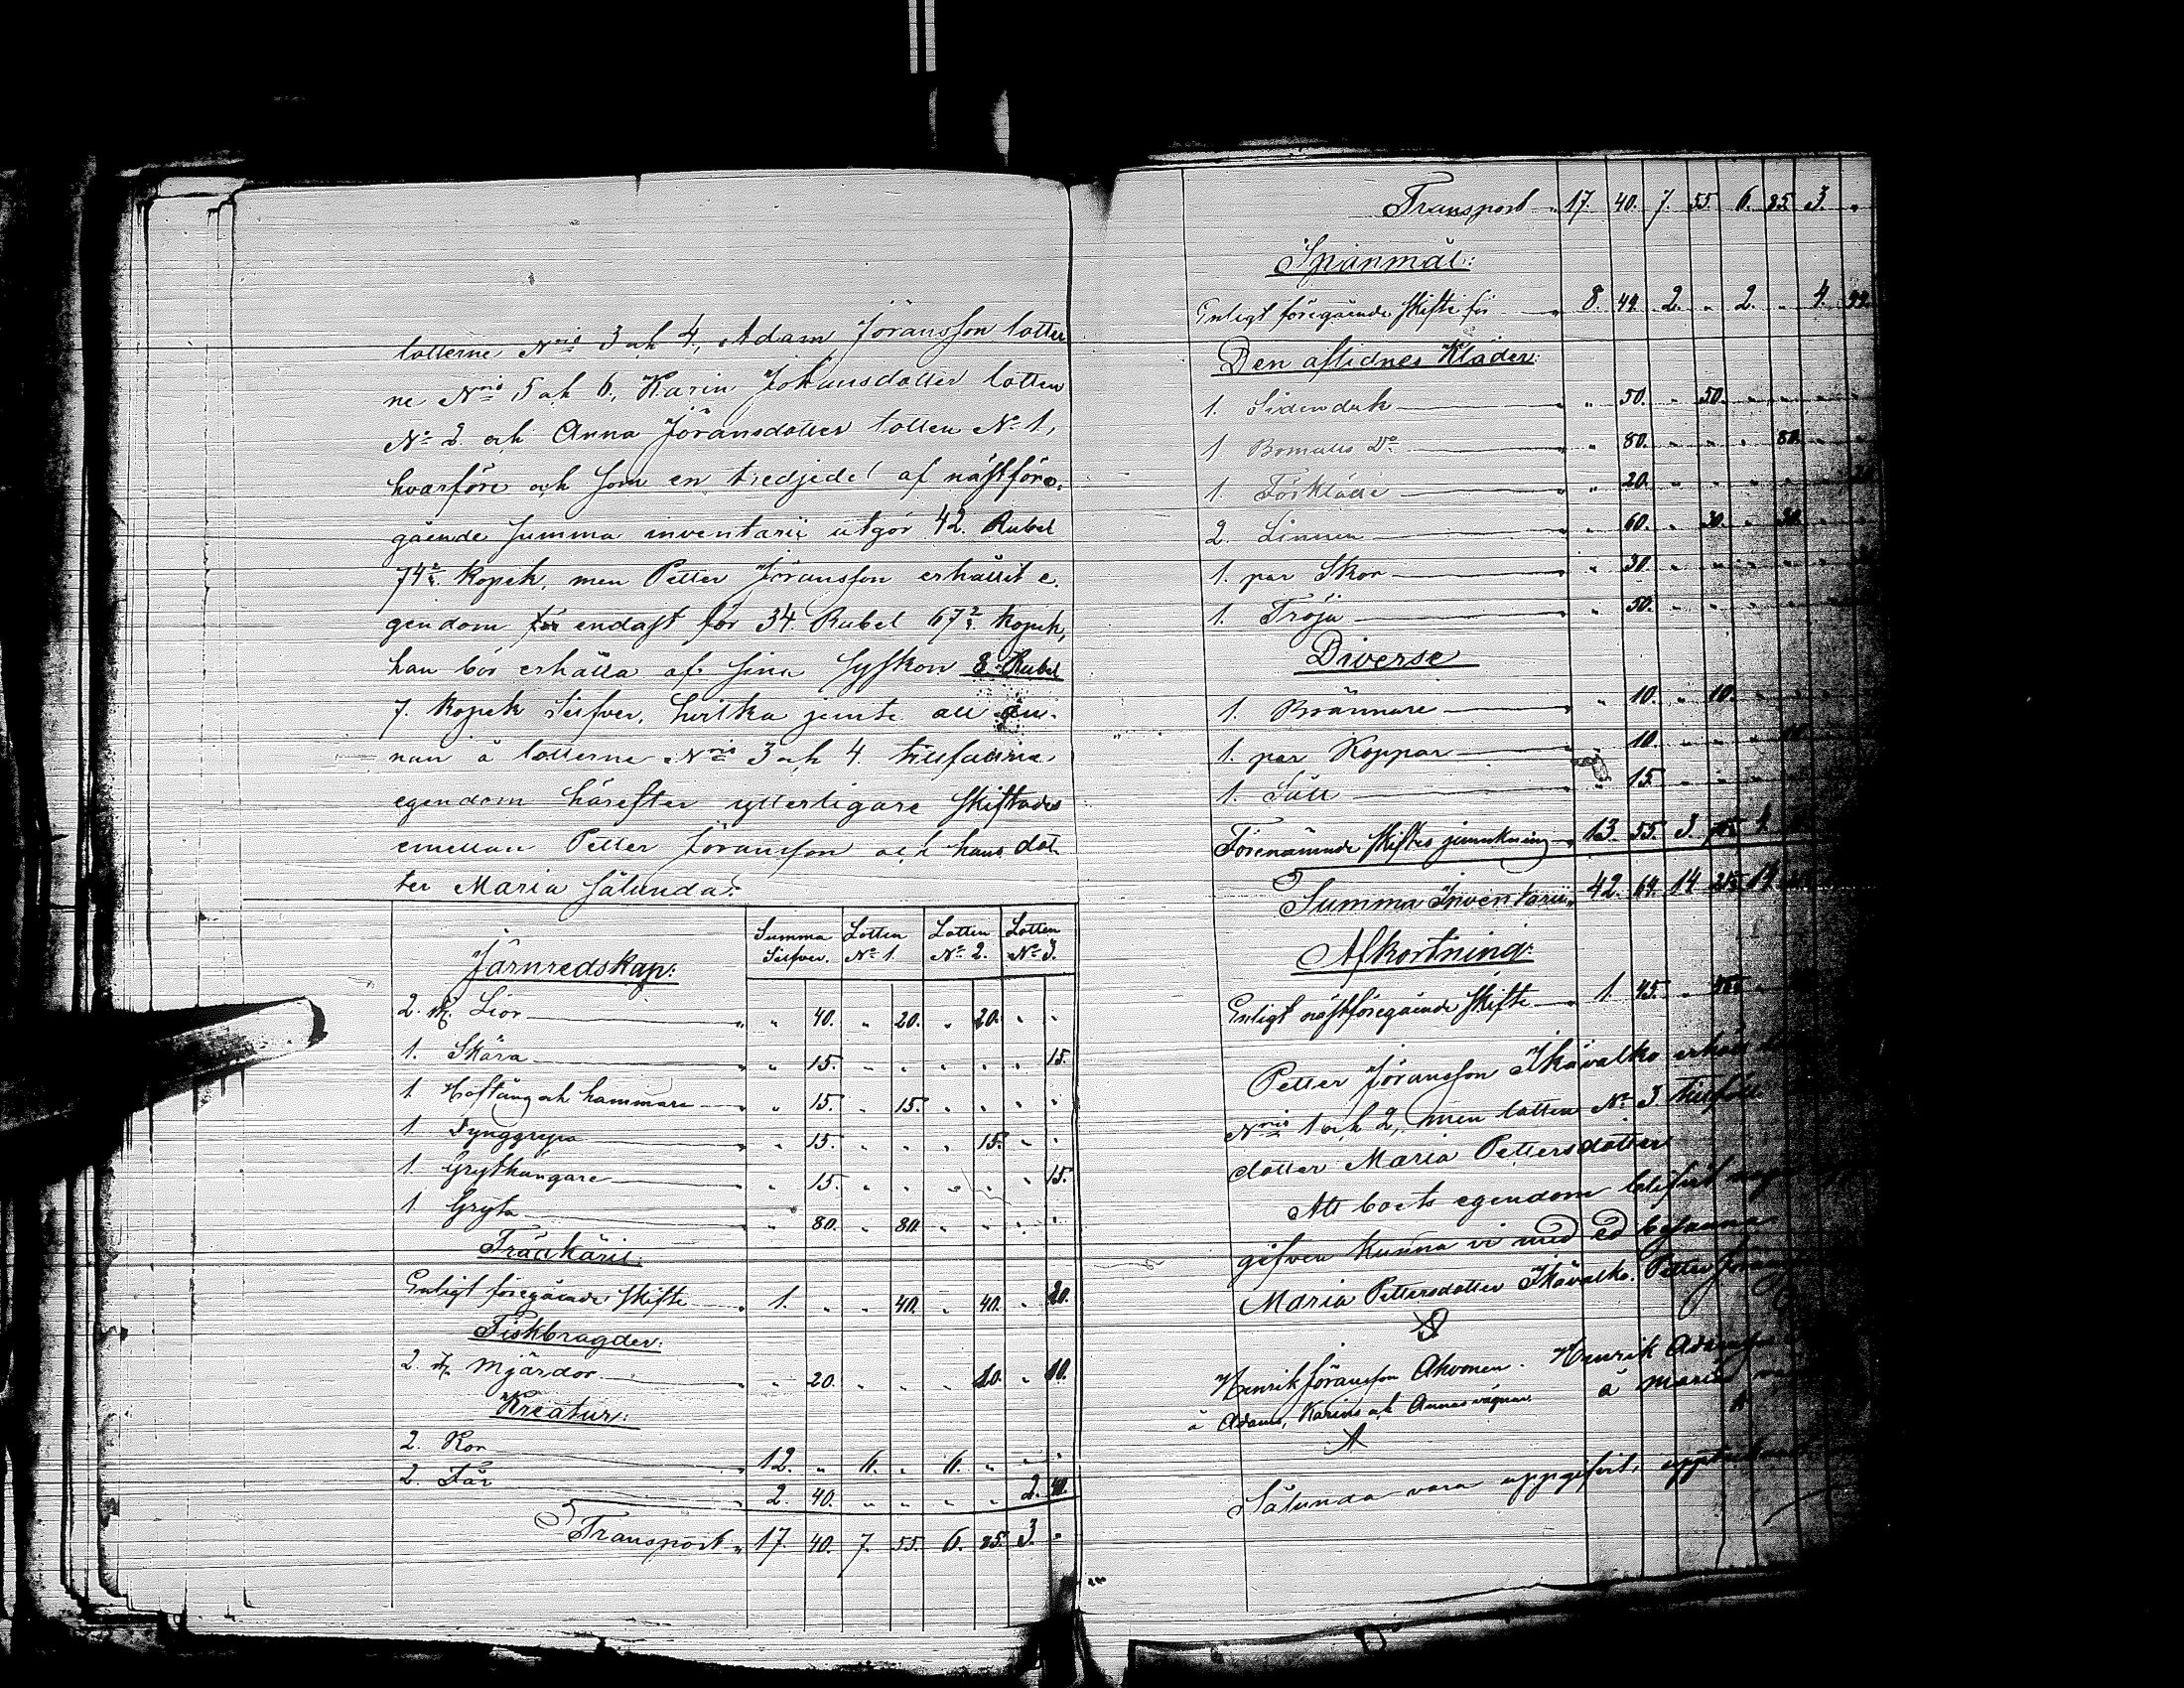 lotterne N:ris 3 och 4, Adam Jöransson lotter
ne N:ris 5 och 6, Karin Johansdotter lotten
N:o 2 och Anna Jöransdotter lotten N:o 1,
hvarföre och som en tredjedel af nästföre-
gående summa inventarii utgör 42 Rubel
74 2/3 Kopek, men Petter Jöransson erhållit e-
gendom för endast för 34 Rubel 67 2/3 kopek,
han bör erhålla af sina syskon 8 Rubel
7 Kopek Silfver, hvilka jemte all
nan å lotterne N:ris 3 och 4 tillfallna
egendom härefter ytterligare skiftades
emellan Petter Jöransson och hans dot-
ter Maria sålunda:
Summa Silfver. Lotten N:o 1. Lotten N:o 2. Lotten N:o 3.
Järnredskap:
2 st. Lior " 40. " 20. " 20. " "
1. Skära " 15. " " " " " 15.
1 Hoftång och hammare " 15. " 15. " " " "
1 " 15. " " " 15. " "
1 Grythängare " 15. " " " " " 15.
1 Gryta " 80. " 80. " " " "
Trädkäril:
Enligt föregående skifte 1. " " 40. " 40. " 20.
Fiskbragder:
2 st. Mjärdor " 20. " " " 10. " 10.
Kreatur:
2. Kor 12. " 6. " 6. " " "
2 Får 2. 40. " " " " 2. 40.
Transport 17. 40. 7. 55. 6. 85. 3. "
Transport 17. 40. 7. 55. 6. 85. 3. "
Spanmål:
Enligt föregående skifte för 8. 49. 2. " 2. " 4.
Den aflidnes Kläder:
1. Sidenduk " 50. " 50. " " "
1 Bomulls D:o " 80. " " " 80. "
1. Förkläde " 20. " " " "
2. Linnen " 60. " 30. " 30. "
1. par Skor " 30. " " "
1. Tröja " 50. " " "
Diverse
1. Brännare " 10. " 10. "
1. par Koppar " 10. " "
1. Såll " 15. " "
Förenämnde skiftes 13. 55. 3.
Summa Inventarii 42. 64. 14
Afkortning:
Enligt nästföregående skifte 1. 45.
Petter Jöransson Ikävalko erhöll
N:ris 1 och 2, men lotten N:o 3 tillföll
dotter Maria Pettersdotter
Att boets egendom blifvit
gifven kunna vi med ed besanna
Maria Pettersdotter Ikävalko. Petter
Henrik Jöransson Ahvonen. Henrik
å Adams, Karins och Annas vägnar. å Marias
Sålunda vara uppgifvit,